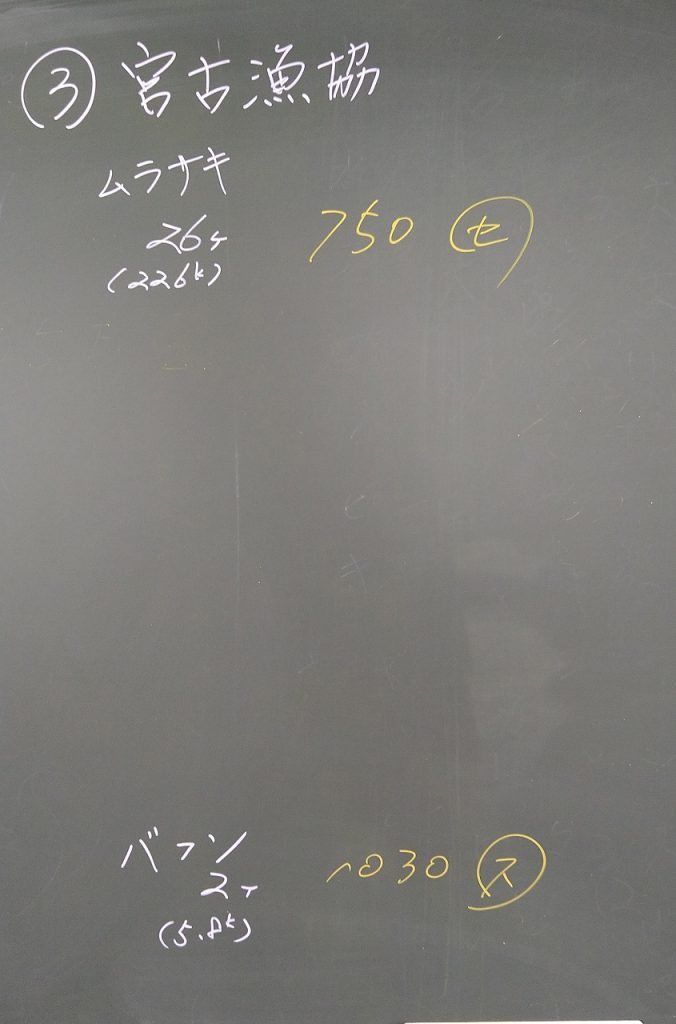 ③ 宮古漁協
ムラサキ
26ケ 750 ㋝
(226k)
バフン
2ケ 1030 ㋜
(5.8k)